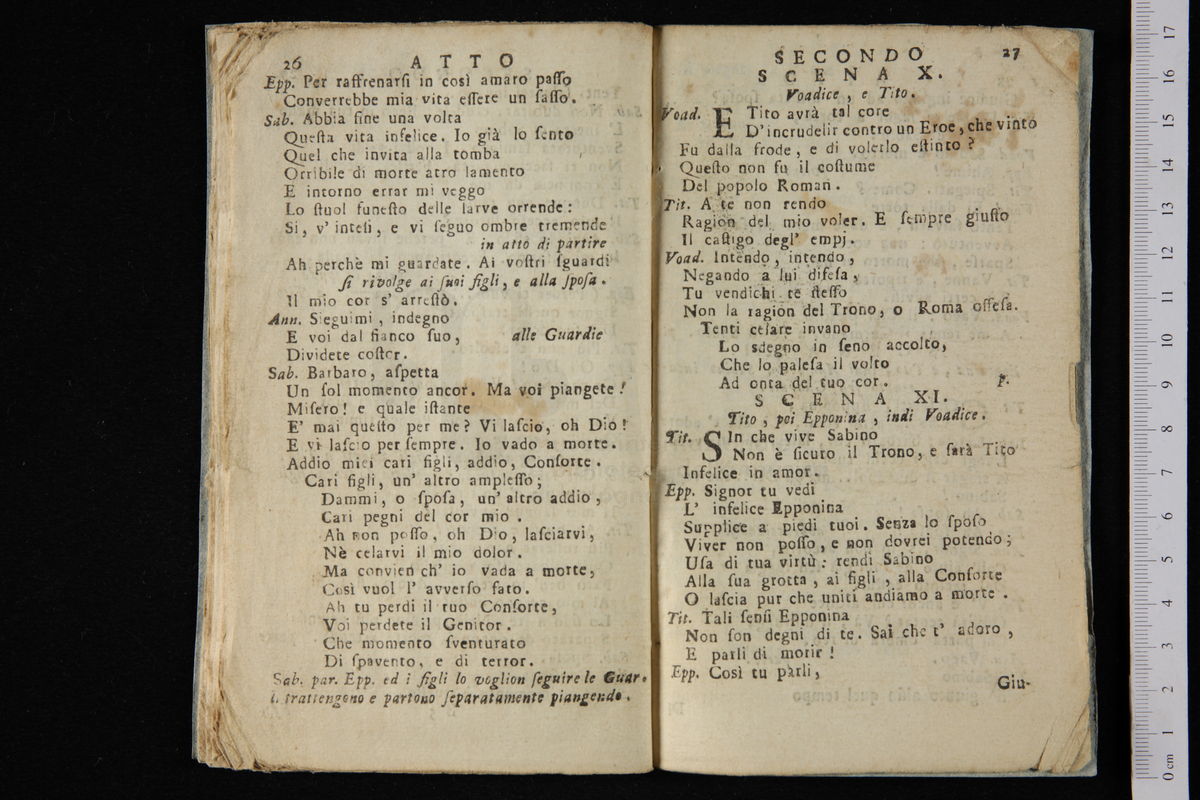 26 ATTO
Epp. Per raffrenarſi in così amaro paſſo
Converrebbe mia vita eſſere un ſaſſo.
Sab. Abbia fine una volta
Queſta vita infelice. Io già lo ſento
Quel che invita alla tomba
Orribile di morte atro lamento
E intorno errar mi veggo
Lo ſtuol funeſto delle larve orrende:
Si, v' inteſi, e vi ſeguo ombre tremende
in atto di partire
Ah perchè mi guardate. Ai voſtri ſguardi
ſi rivolge ai ſuoi figli, e alla ſpoſa.
Il mio cor s' arreſtò.
Ann. Sieguimi, indegno
E voi dal fianco ſuo, alle Guardie
Dividete coſtor.
Sab. Barbaro, aſpetta
Un ſol momento ancor. Ma voi piangete!
Miſero! e quale iſtante
E' mai queſto per me? Vi laſcio, oh Dio!
E vi laſcio per ſempre. Io vado a morte.
Addio miei cari figli, addio, Conſorte.
Cari figli, un' altro ampleſſo;
Dammi, o ſpoſa, un' altro addio,
Cari pegni del cor mio.
Ah non poſſo, oh Dio, laſciarvi,
Nè celarvi il mio dolor.
Ma convien ch' io vada a morte,
Così vuol l' avverſo fato.
Ah tu perdi il tuo Conſorte,
Voi perdete il Genitor.
Che momento ſventurato
Di ſpavento, e di terror.
Sab. par. Epp. ed i figli lo voglion ſeguire le Guar.
li trattengono e partono ſeparatamente piangendo.
SECONDO 27
SCENA X.
Voadice, e Tito.
Voad. E Tito avrà tal core
D'incrudelir contro un Eroe, che vinto
Fu dalla frode, e di volerlo eſtinto?
Queſto non fu il coſtume
Del popolo Roman.
Tit. A te non rendo
Ragion del mio voler. E ſempre giuſto
Il caſtigo degl' empj.
Voad. Intendo, intendo,
Negando a lui difeſa,
Tu vendichi te ſteſſo
Non la ragion del Trono, o Roma offeſa.
Tenti celare invano
Lo sdegno in ſeno accolto,
Che lo paleſa il volto
Ad onta del tuo cor. p.
SCENA XI.
Tito, poi Epponina, indi Voadice.
Tit. SIn che vive Sabino
Non è ſicuro il Trono, e ſarà Tito
Infelice in amor.
Epp. Signor tu vedi
L' infelice Epponina
Supplice a piedi tuoi. Senza lo ſpoſo
Viver non poſſo, e non dovrei potendo;
Uſa di tua virtù: rendi Sabino
Alla ſua grotta, ai figli, alla Conſorte
O laſcia pur che uniti andiamo a morte.
Tit. Tali ſenſi Epponina
Non ſon degni di te. Sai che t' adoro,
E parli di morir!
Epp. Così tu parli,
Giu-
17
16
15
14
13
12
11
10
9
8
7
6
5
4
3
2
1
0 cm